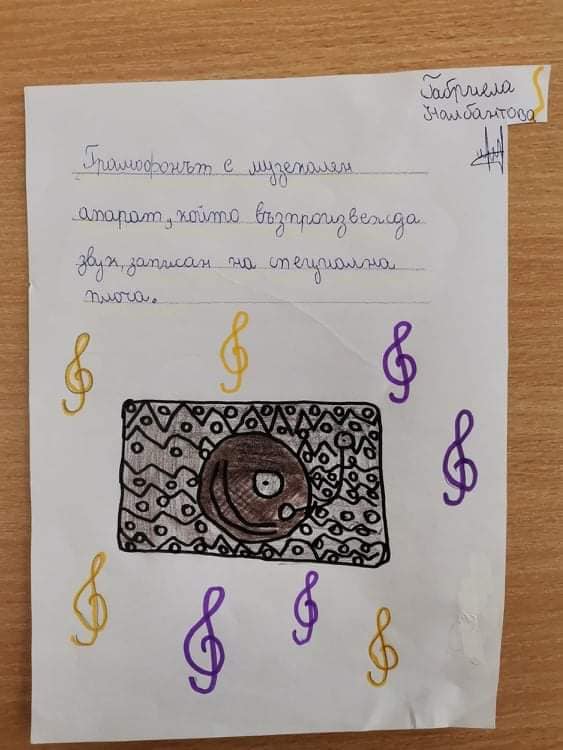 Габриела
Налбантова
Грамофонът е музекален
апарат, който възпроизвежда
звук, записан на специална
плоча.